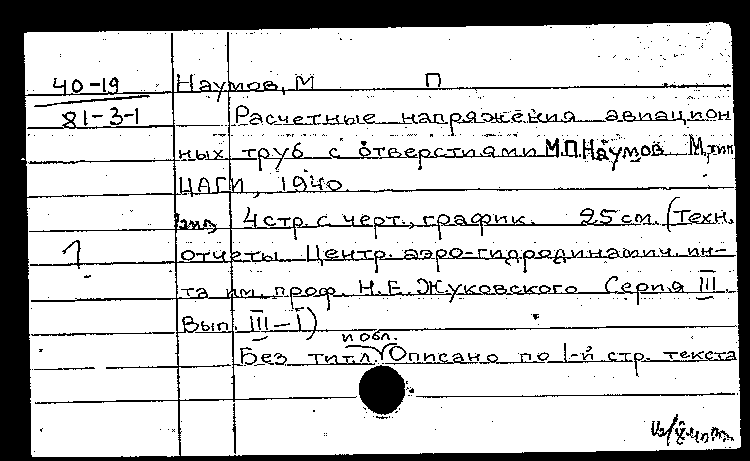 40-19
81-3-1
Наумов, М П
Расчетные напряжения авиацион
ных труб с отверстиями М.П.Наумов М, тип
ЦАГИ, 1940
4 стр. с черт., график. 25 см. (Техн.
1
отчеты Центр. аэро-гидродинамич. ин-
та им. проф. Н.Е. Жуковского Серия III.
Вып. III-I)
и обл.
Без тит.л. Описано по 1-й стр. текста